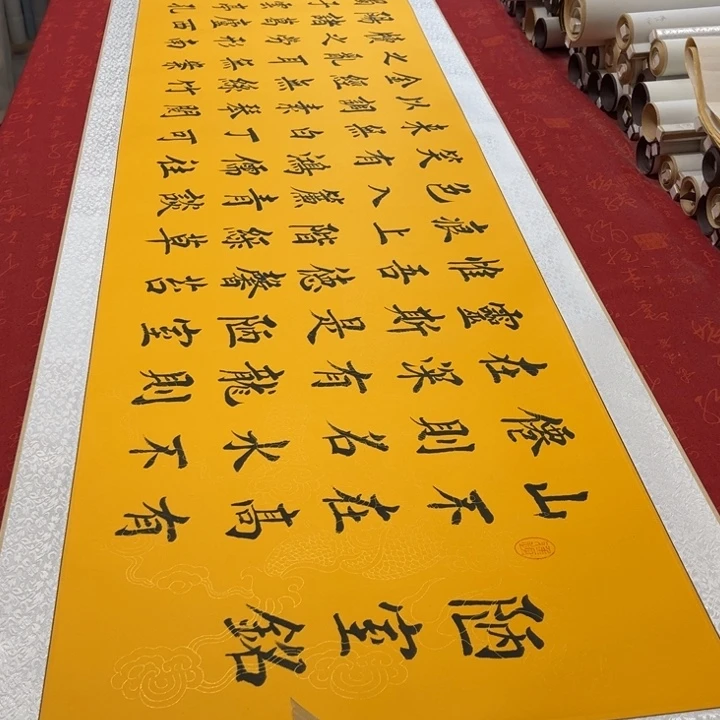 陋室銘
山不在高有
僊則名水不
在深有龍則
靈斯是陋室
惟吾德馨苔
痕上階綠草
色入簾青談
笑有鴻儒往
来無白丁可
以調素琴閱
金經無絲竹
之亂耳無案
牘之勞形南
陽諸葛廬西
蜀子雲亭孔